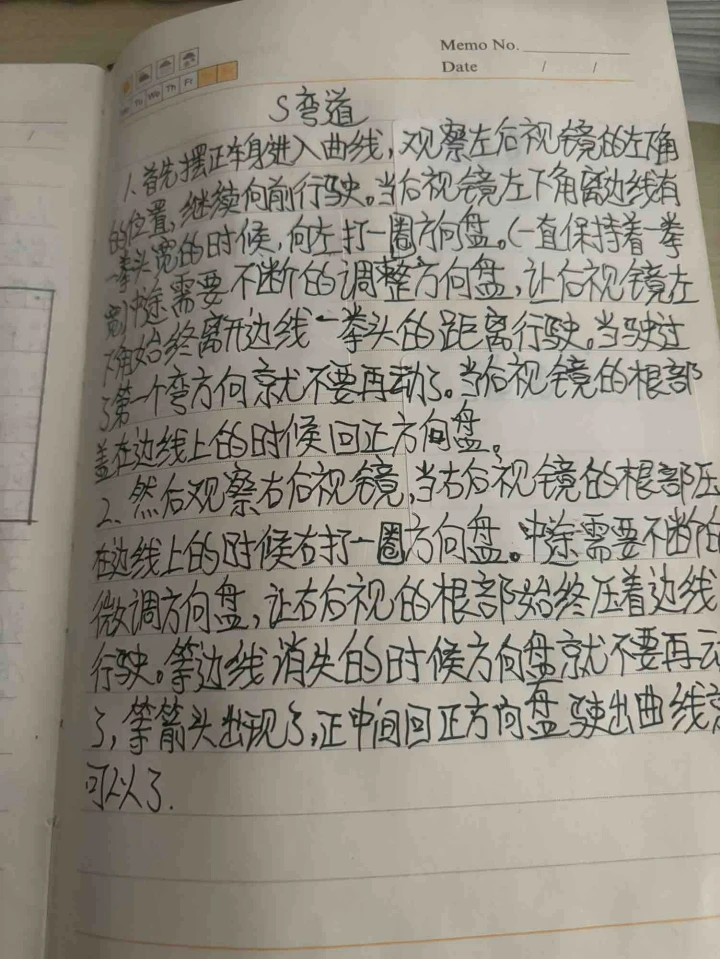 Memo No.
Date / /
Tu We Th Fr
S弯道
1、首先摆正车身进入曲线,观察左后视镜的左下角
的位置,继续向前行驶。当后视镜左下角离边线有
一拳头宽的时候,向左打一圈方向盘。(一直保持着一拳
宽)中途需要不断的调整方向盘,让后视镜左
下角始终离开边线一拳头的距离行驶。当驶过
了第一个弯方向就不要再动了。当后视镜的根部
盖在边线上的时候回正方向盘。
2、然后观察右后视镜,当右后视镜的根部压
在边线上的时候右打一圈方向盘。中途需要不断的
微调方向盘,让右后视的根部始终压着边线
行驶。等边线消失的时候方向盘就不要再动
了,等箭头出现了,正中间回正方向盘驶出曲线就
可以了.